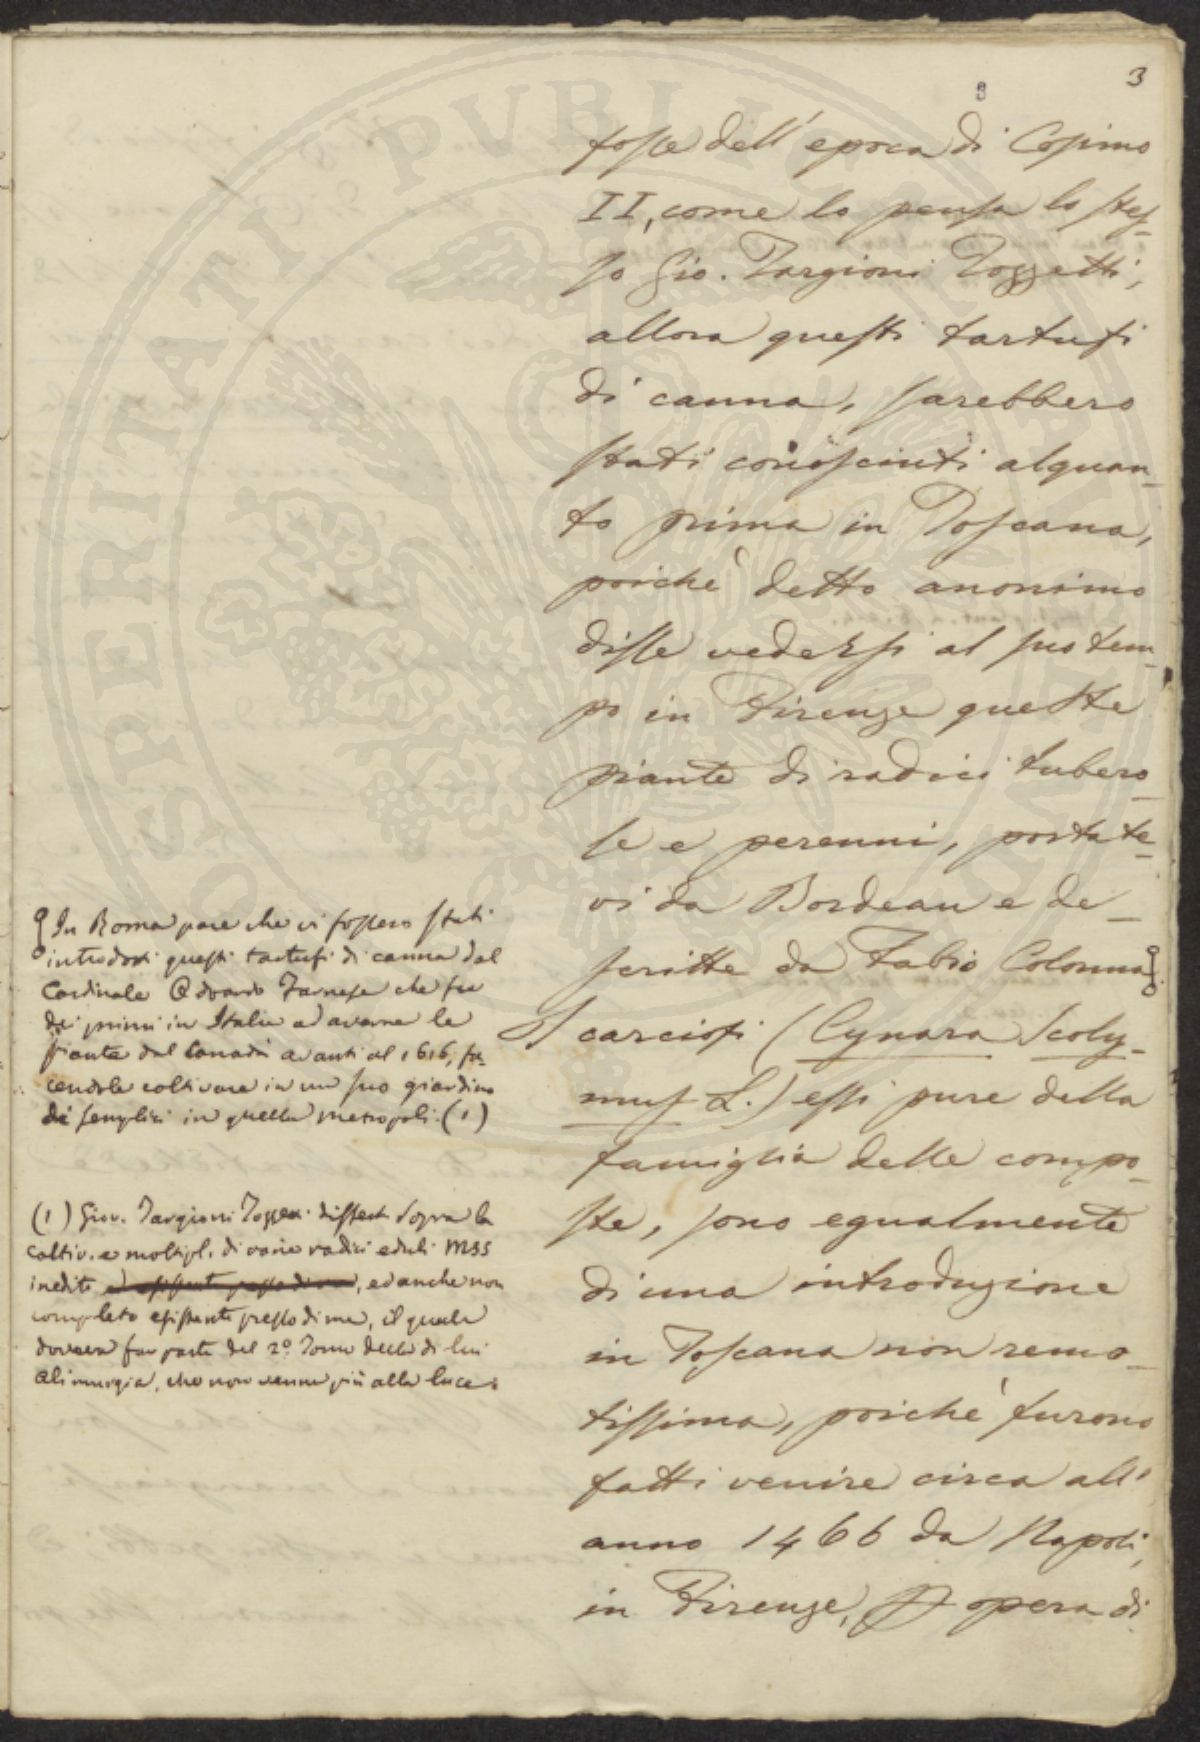 3
fosse dell'epoca di Cosimo
II, come lo pensa lo stes-
so Gio. Targioni Tozzetti,
allora questi tartufi
di canna, sarebbero
stati conosciuti alquan-
to prima in Toscana,
poichè detto anonimo
disse vedersi al suo tem-
po in Firenze queste
piante di radici tubero-
se e perenni, portate-
vi da Bordeau e de-
scritte da Fabio Colonna
I carciofi (Cynara Scoly-
mus L.) essi pure della
famiglia delle compo-
ste, sono egualmente
di una introduzione
in Toscana non remo-
tissima, poichè furono
fatti venire circa all'
anno 1466 da Napoli,
in Firenze, opera di
In Roma pare che vi fossero stati
introdotti questi tartufi di canna dal
Cardinale Odoardo Farnese che fu
dei primi in Italia ad averne le
piante dal Canadà avanti al 1616, fa-
cendole coltivare in un suo giardino
di semplici in quella metropoli. (1)
(1) Giov. Targioni Tozzetti dissert. Sopra la
coltiv. e moltipl. di varie radici eduli MSS
inedito, ed anche non
completo esistente presso di me, il quale
doveva far parte del 2.º Tomo della di lui
Alimurgia, che non venne più alla luce.
SPERITATI PUBLICAE